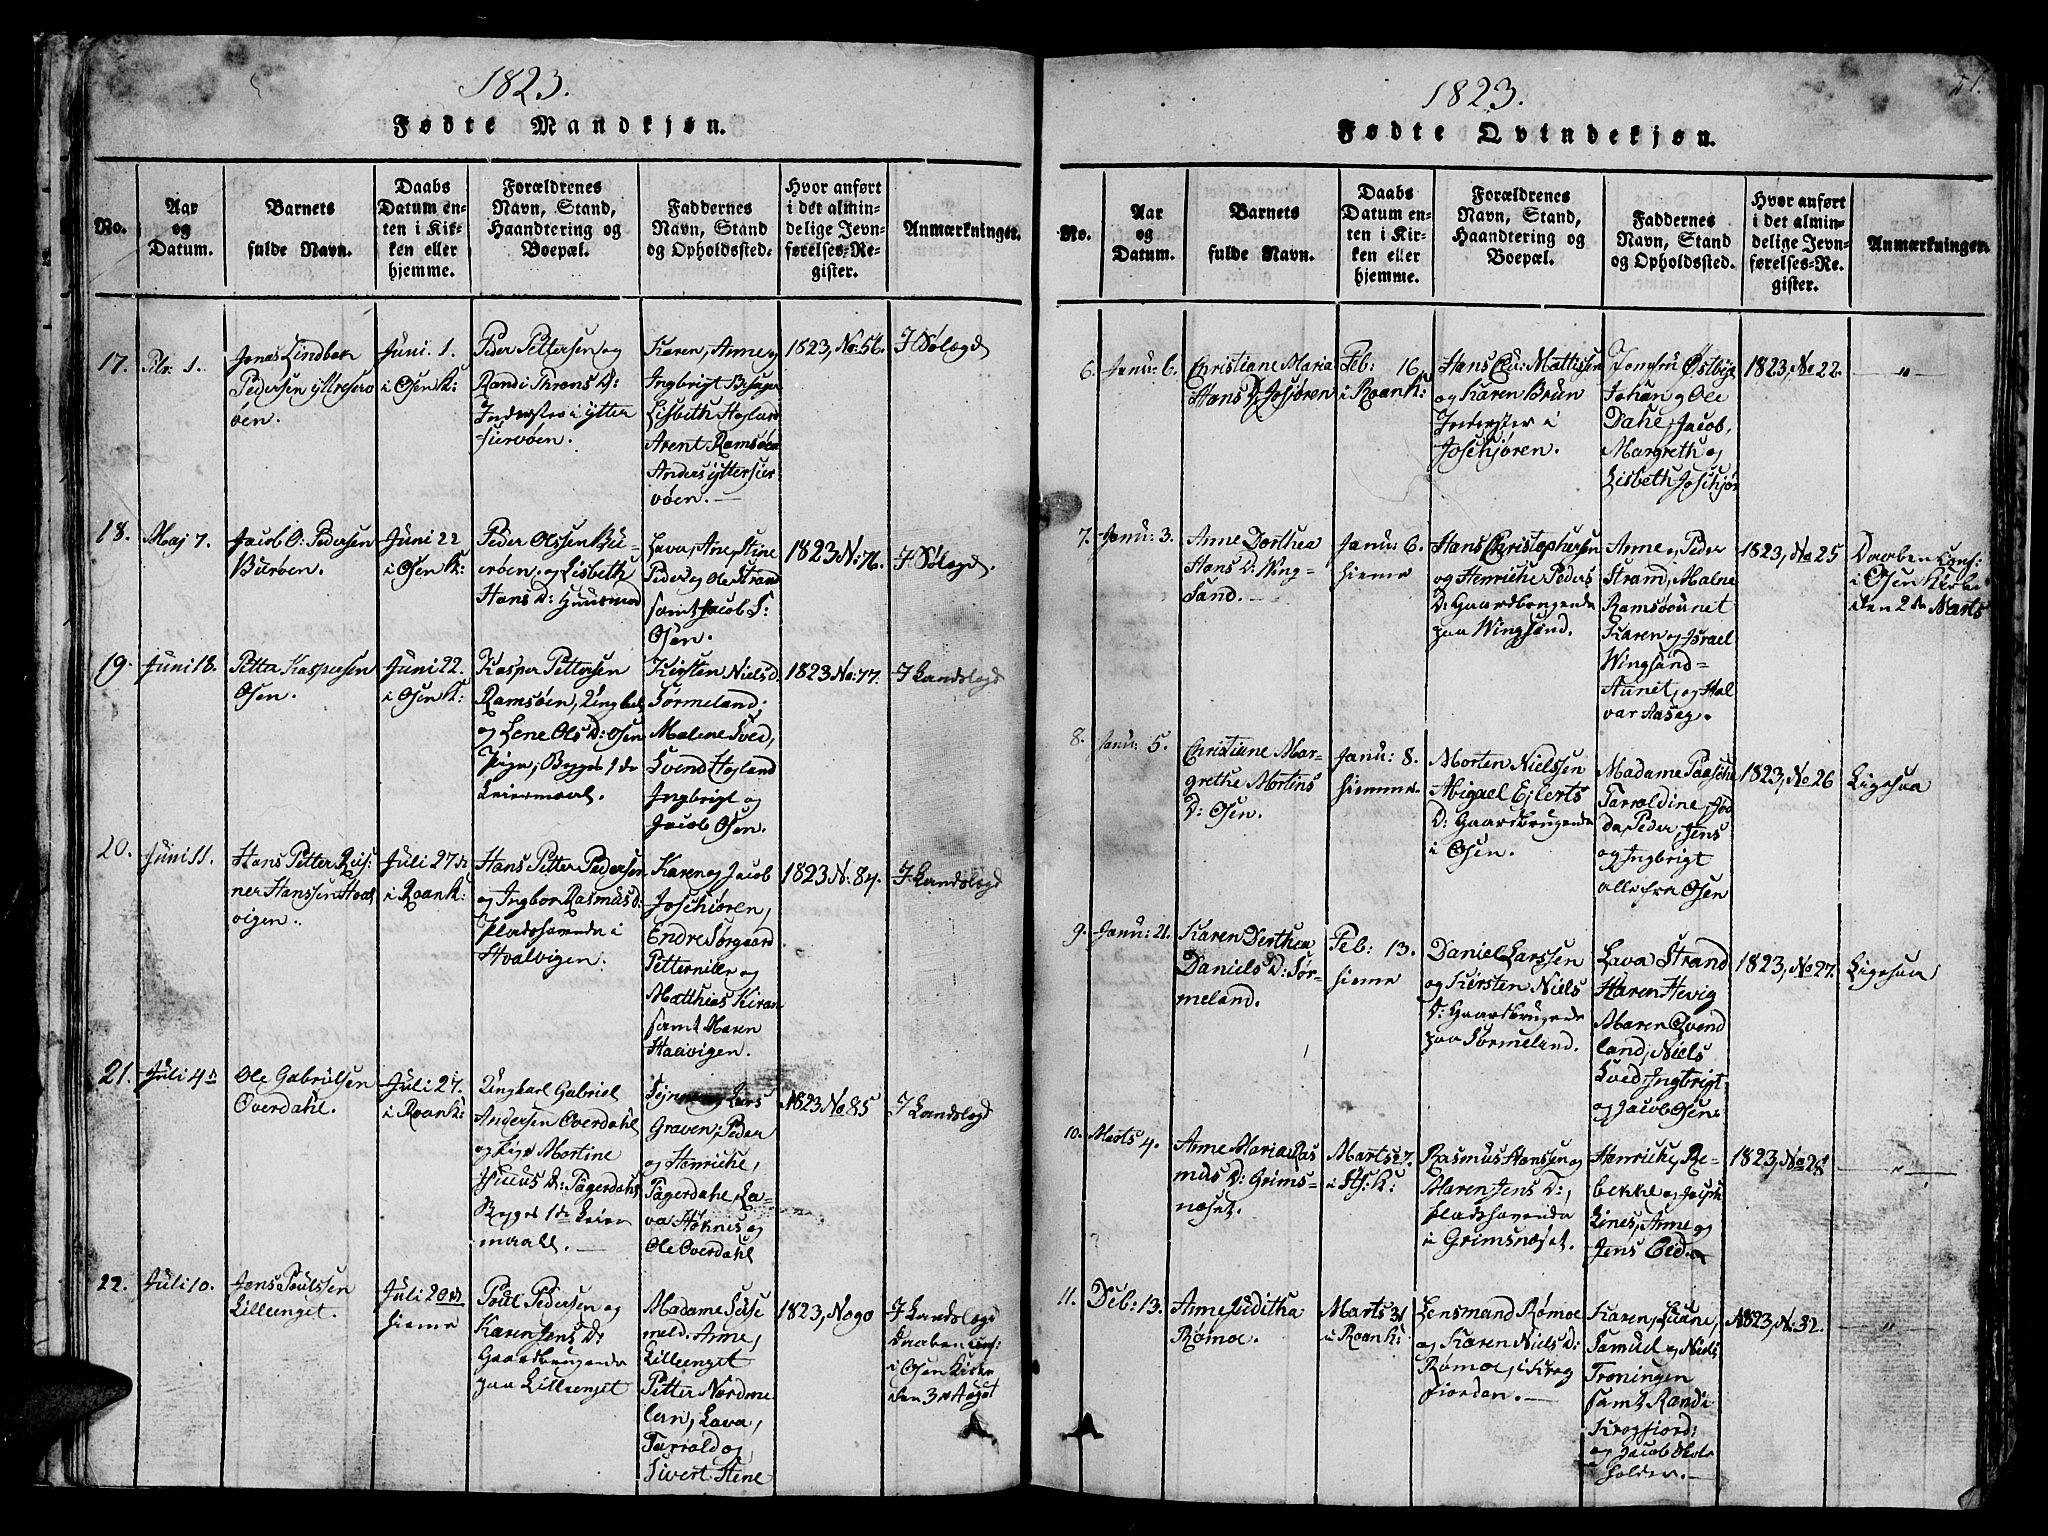 1823.
Fødte Mandkjøn.
No.
Aar
og
Datum.
Barnets
fulde Navn.
Daabs
Datum en-
ten i Kir-
ken eller
hjemme.
Forældrenes
Navn, Stand,
Haandtering og
Boepæl.
Faddernes
Navn, Stand
og Opholdssted.
Hvor anført
i det almin-
delige Jevn-
førelses-Re-
gister.
Anmærkninger.
17.
1.
Jonas Lindbak
Pedersen
øen.
Juni. 1.
i Osen K:
Peder Pettersen og
Randi Throns D:
Inderster i Ytter
Karen, Anne og
Ingbrigt
Lisbeth Hopland
Arent Ramsøen
Anders Yttersier
vøen.
1823, No: 56.
18.
Maj 7.
Jacob O: Pedersen
Burøen.
Juni 22
i Osen K:
Peder Olssen Bu-
erøen og Lisbeth
Hans D: Huusmand
Lava, Ane, Stine
Peder og Ole Strand
samt Jacob S:
Osen.
1823 No: 76.
19.
Juni 18.
Petter Kaspersen
Osen.
Juni 22.
i Osen K:
Kasper Pettersen
Ramsøen, Ungkarl
og Lene Ols D: Osen
Pige, Beges 1de
Leiermaal.
Kirsten Niels d:
Sørmeland,
Malene Sved,
Svend Hopland
Ingbrigt og
Jacob Osen.
1823 No: 77.
20.
Juni 11.
Hans Petter
ner Hanssen
vigen.
Juli 27de
i Roan K:
Hans Petter Pedersen
og Ingbor Rasmus d:
Pladshavende i
Hvalvigen.
Karen og Jacob
Joschiøren,
Endre Sørgaard
Petternille og
Matthias Kiran
samt Maren
Haavigen.
1823 N: 84.
21.
Juli 4de
Ole Gabrielsen
Overdahl.
Juli 27.
i Roan K:
Ungkarl Gabriel
Andersen Overdahl
og Pige Mortine
D: Fagerdahl
Beges 1de Leier
maall.
Lars
Graven, Peder
og Henriche,
Fagerdahl, La-
va Hofnes og
Ole Overdahl
1823 No 85
22.
Juli 10.
Jens Poulssen
Lilleenget.
Juli 20de
hiemme
Poul Pedersen og
Karen Jens D:
Gaardbrugende
paa Lilleenget
Madame
Anne,
Lilleenget
Petter Nordme
lan, Lava,
Tarrald og
Sivert Stene
1823, No 90
i Osen Kirke
den 3de August
1823.
Fødte Qvindekjøn.
No.
Aar
og
Datum.
Barnets
fulde Navn.
Daabs
Datum en-
ten i Kir-
ken eller
hjemme.
Forældrenes
Navn, Stand,
Haandtering og
Boepæl.
Faddernes
Navn, Stand
og Opholdssted.
Hvor anført
i det almin-
delige Jevn-
førelses-Re-
gister.
Anmærkninger.
6.
Janu: 6.
Christiane Maria
Hans D: Josjøren
Feb: 16
i Roan K:
Hans Mattissen
og Karen Brun
Inderster i
Joschjøren.
Jomfru Østbye
Johan og Ole
Dahl, Jacob,
Margreth og
Lisbeth Joschjør
1823, No 22.
"
7.
Janu: 3.
Anne Dorthea
Hans D: Wing-
sand.
Janu: 6.
hiemme
Hans Christophersen
og Henriche Peders
D: Gaardbrugende
paa Wingsand.
Anne, Peder
Strand, Malene
Ramsøunet
Karen og Israel
Wingsand-
Aunet, og Hal
var Aaseg.
1823, No 25
Daaben
i Osen Kirke
den 2de Marts
8.
Janu: 5.
Christiane Mar-
grethe Mortens
D: Osen.
Janu: 8.
hiemme
Morten Nielssen
Abigael Ejlerts
D: Gaardbrugende
i Osen.
Madame Paasche
Tarraldine,
Peder, Jens
og Ingbrigt
alle fra Osen
1823, No 26
Ligesaa
9.
Janu: 21.
Karen Derthea
Daniels D: Sør-
meland.
Feb: 13.
hieme
Daniel Larssen
og Kirsten Niels
D: Gaardbrugende
paa Sørmeland.
Lava Strand
Karen Hevig
Maren Qvend
land, Niels
Sved, Ingbrigt
og Jacob Osen.
1823, No 27.
Ligesaa
10.
Marts 4.
Anne Maria Ras
mus D: Grims-
næset.
Marts 27.
i St: K:
Rasmus Hanssen og
Maren Jens D:,
pladshavende
i Grimsnæset.
Henriche, Re-
bekke og Joseph
Lines, Anne og
Jens Eid.
1823, No 28
"
11.
Deb: 13.
Anne Juditha
Rømoe.
Marts 31
i Roan K:
Lensmand Rømoe
og Karen Niels D:
Rømoe, i Krog
fiorden.
Karen, Liane,
Samuel og Niels
Troningen
samt Randi
Krogfiord
og Jacob
holden.
1823, No: 32.
"